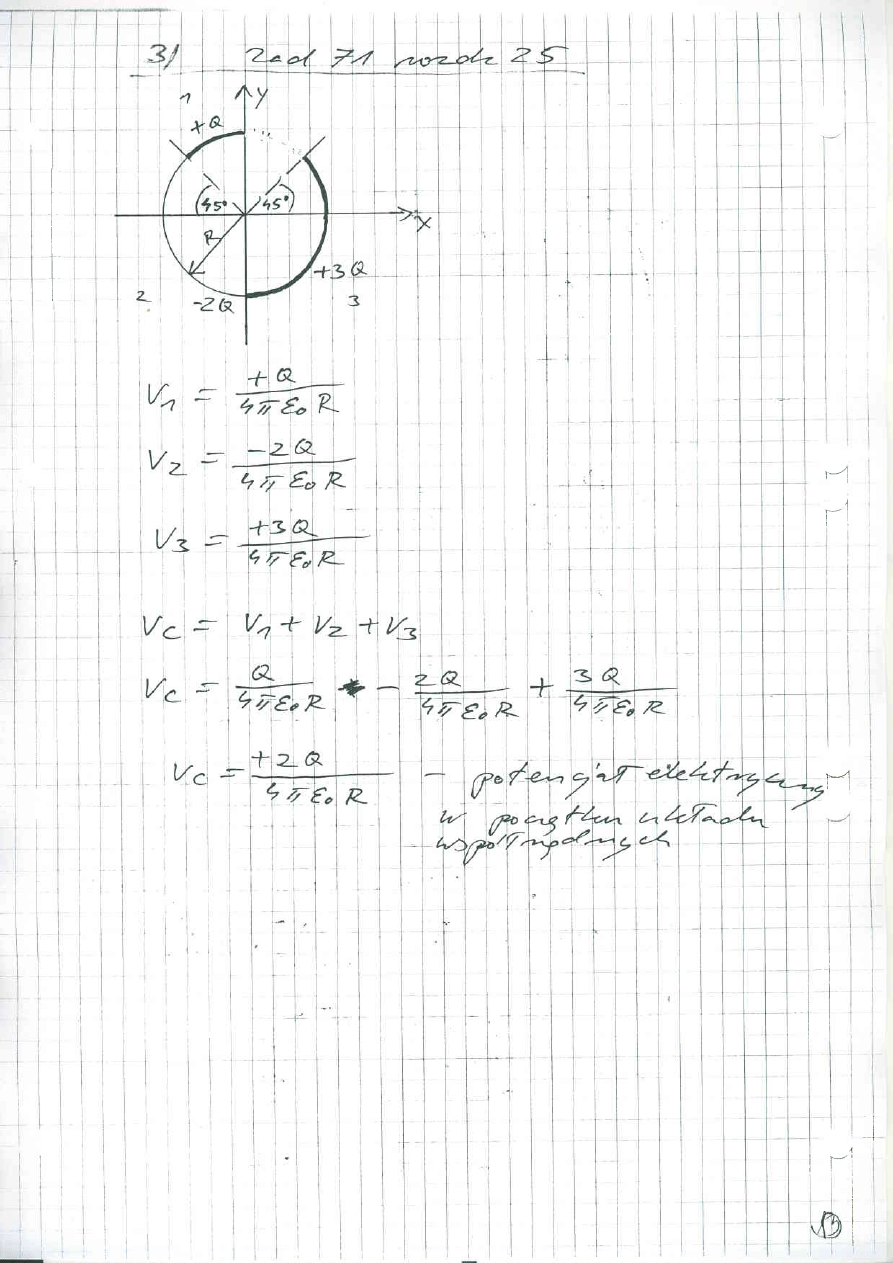 3) Zad 71 rozdz 25
1
y
+Q
45° 45°
x
R
+3Q
2 -2Q 3
V₁ = +Q / 4πε₀R
V₂ = -2Q / 4πε₀R
V₃ = +3Q / 4πε₀R
Vc = V₁ + V₂ + V₃
Vc = Q / 4πε₀R - 2Q / 4πε₀R + 3Q / 4πε₀R
Vc = +2Q / 4πε₀R - potencjał elektryczny
w początku układu
współrzędnych